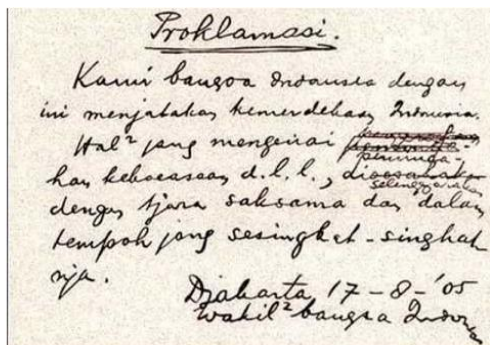 Proklamasi.
Kami bangsa Indonesia dengan
ini menjatakan kemerdekaan Indonesia.
Hal² jang mengenai
peminda-
han kekoeasaan d.l.l.,
selenggarakan
dengan tjara saksama dan dalam
tempoh jang sesingkat-singkat
nja.
Djakarta 17-8-'05
Wakil² bangsa Indonesia